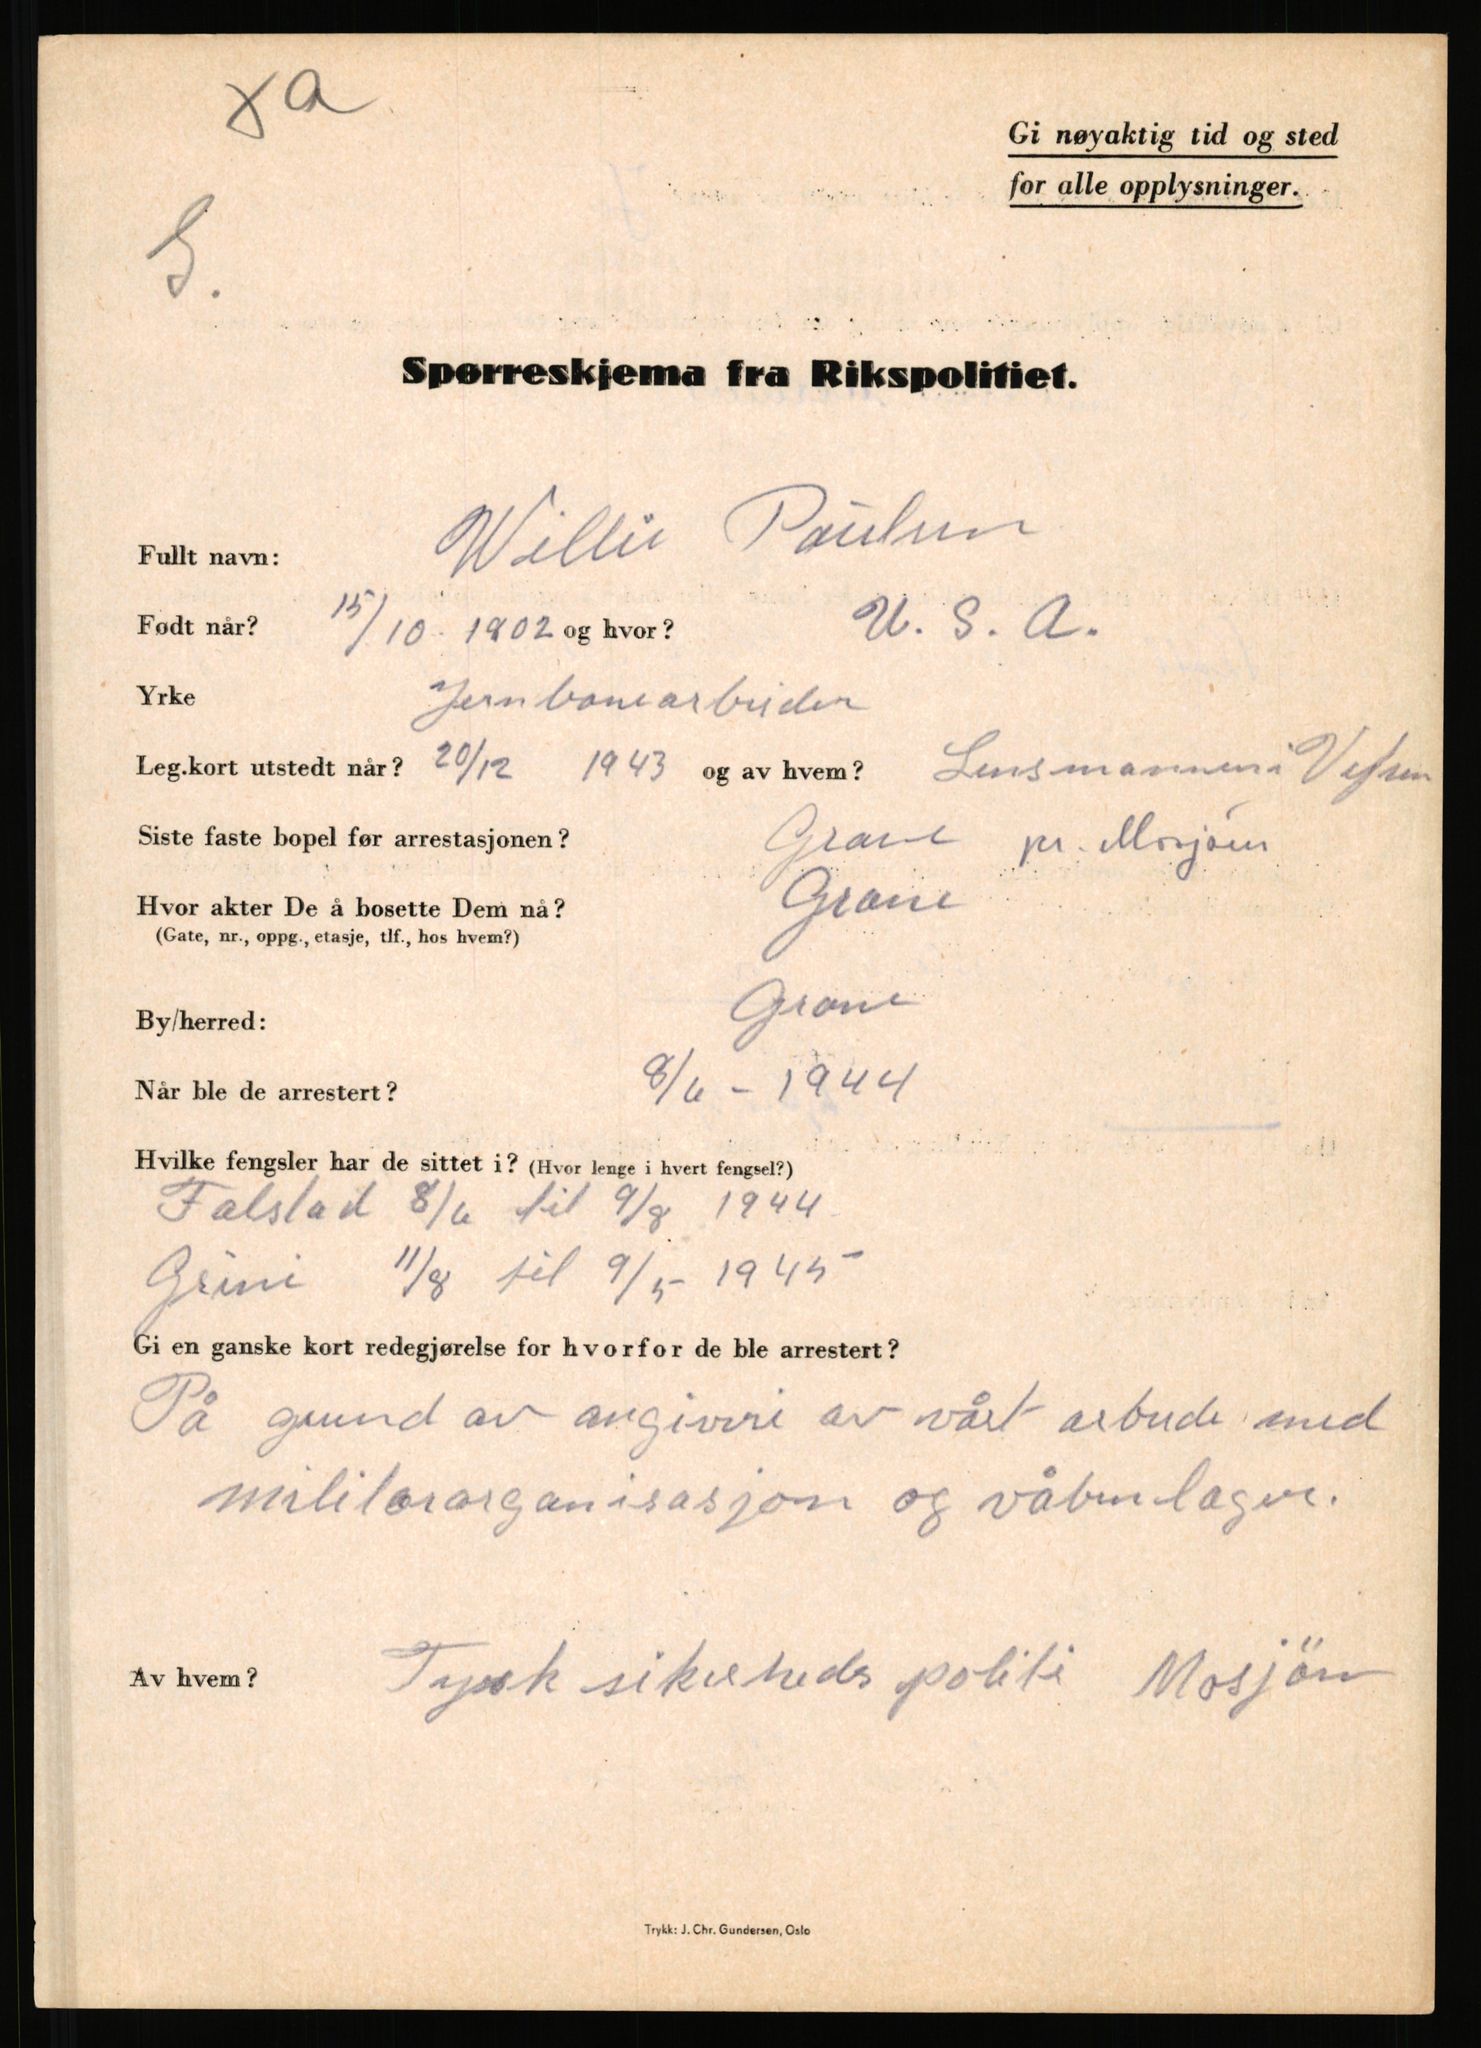 xa
Gi nøyaktig tid og sted
for alle opplysninger.
S.
Spørreskjema fra Rikspolitiet.
Fullt navn: Willie Paulsen
Født når? 15/10 1902 og hvor? U. S. A.
Yrke Jernbanearbeider
Leg.kort utstedt når? 20/12 1943 og av hvem? Lensmannen i Vefsen
Siste faste bopel før arrestasjonen? Grane pr. Mosjøen
Hvor akter De å bosette Dem nå? Grane
(Gate, nr., oppg., etasje, tlf., hos hvem?)
By/herred: Grane
Når ble de arrestert? 8/6 - 1944
Hvilke fengsler har de sittet i? (Hvor lenge i hvert fengsel?)
Falstad 8/6 til 9/8 1944
Grini 11/8 til 9/5 - 1945
Gi en ganske kort redegjørelse for hvorfor de ble arrestert?
På grund av angiveri av vårt arbeide med
militærorganisasjon og våbenlager.
Av hvem? Tysk sikerheds politi Mosjöen
Trykk: J. Chr. Gundersen, Oslo